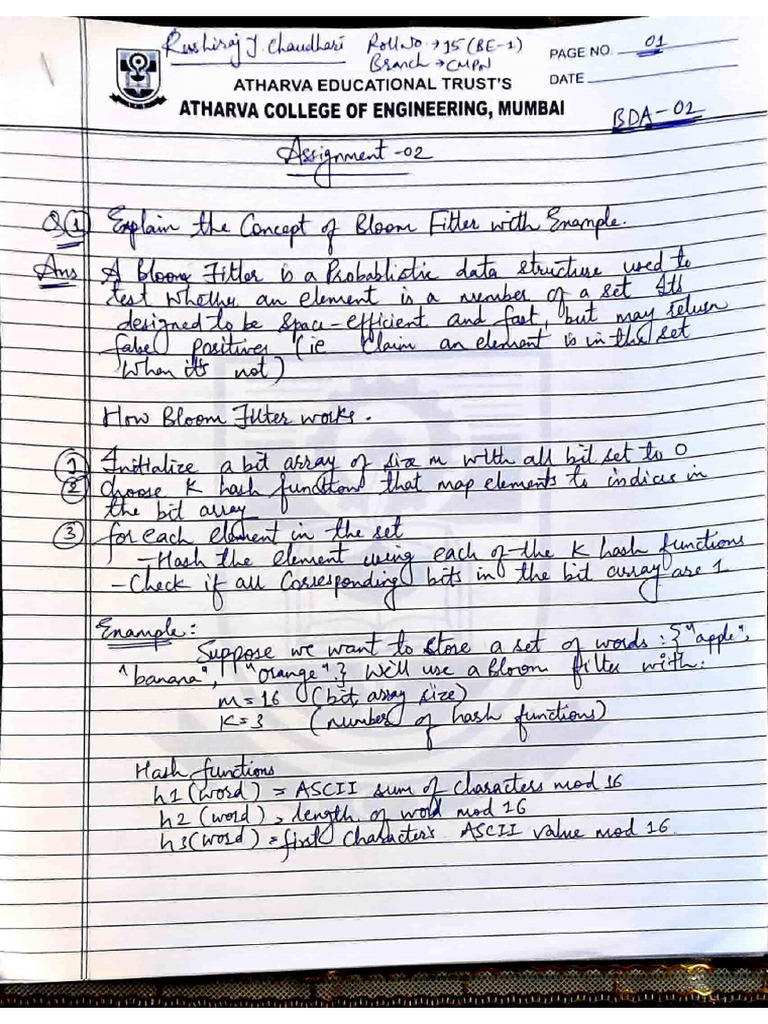 Rushiraj J. Chaudhari Roll No → 15 (BE-1) PAGE NO. 01
Branch → CMPN DATE
ATHARVA EDUCATIONAL TRUST'S
ATHARVA COLLEGE OF ENGINEERING, MUMBAI
BDA-02
Assignment -02
Q(1) Explain the Concept of Bloom Filter with Example.
Ans A Bloom Filter is a Probablistic data structure used to
test whether an element is a member of a set Its
designed to be space-efficient and fast, but may return
false positives (ie claim an element is in the set
when it's not)
How Bloom Filter works.
(1) Initialize a bit array of size m with all bit set to 0
(2) choose K hash functions that map elements to indices in
the bit array
(3) for each element in the set
- Hash the element using each of the K hash functions
- Check if all corresponding bits in the bit array are 1
Example:
Suppose we want to store a set of words : {"apple",
"banana", "orange".} We'll use a Bloom filter with:
m = 16 (bit array size)
K = 3 (number of hash functions)
Hash functions
h1 (word) = ASCII sum of characters mod 16
h2 (word) = length of word mod 16
h3 (word) = first character's ASCII value mod 16.